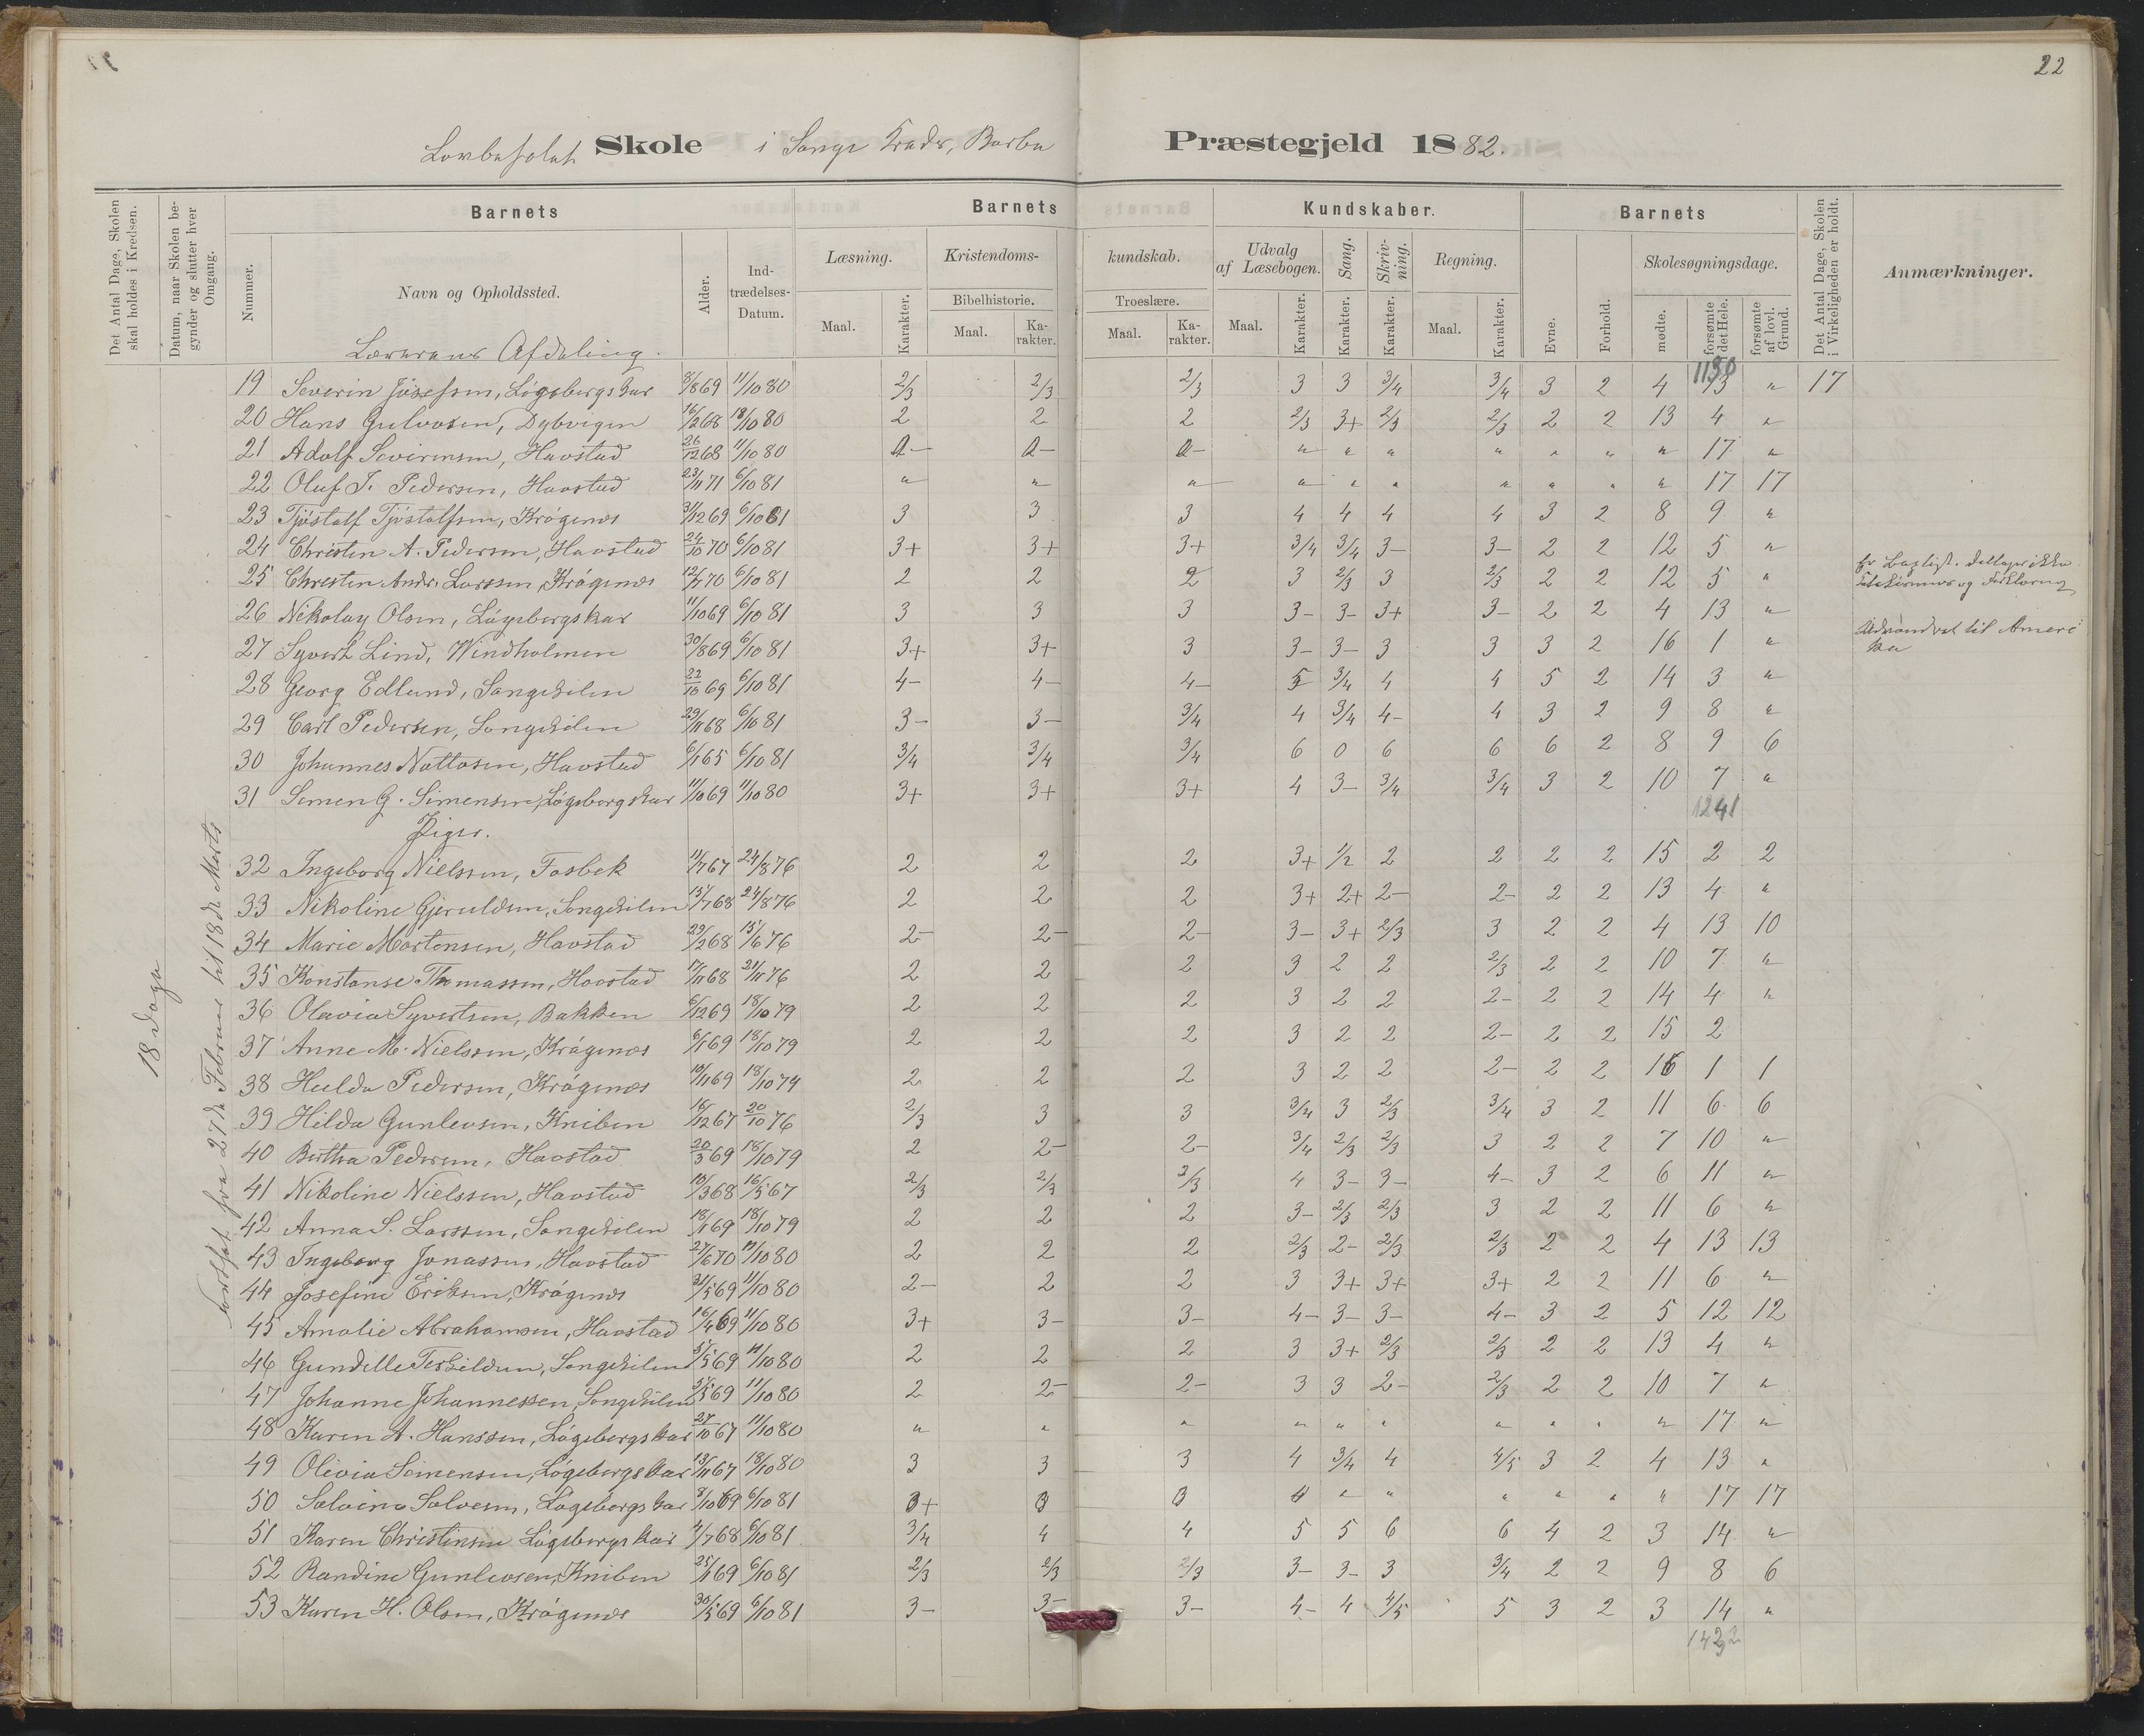 22
Skole i Songe Kreds, Barbu Præstegjeld 1882.
Det Antal Dage, Skolen skal holdes i Kredsen.
Datum, naar Skolen begynder og slutter hver Omgang.
Barnets
Nummer.
Navn og Opholdssted.
Alder.
Indtrædelses-Datum.
Barnets Kundskaber.
Læsning. Maal. Karakter.
Kristendomskundskab.
Bibelhistorie. Maal. Karakter.
Troeslære. Maal. Karakter.
Udvalg af Læsebogen. Maal. Karakter.
Sang. Karakter.
Skrivning. Karakter.
Regning. Maal. Karakter.
Barnets
Evne. Forhold.
Skolesøgningsdage.
mødte. forsømte det Hele. forsømte af lovl. Grund.
Det Antal Dage, Skolen i Virkeligheden er holdt.
Anmærkninger.
Lærerens Afdeling.
1130
19 Severin Josefsen, Løgebergskar 8/8 69 11/10 80 2/3 2/3 2/3 3 3 3/4 3/4 3 2 4 13 " 17
20 Hans Gulovsen, Dybvigen 16/2 68 18/10 80 2 2 2 2/3 3+ 2/3 2/3 2 2 13 4 "
21 Adolf Severinsen, Havstad 26/12 68 11/10 80 " " " " " " " 17 "
22 Oluf T. Pedersen, Havstad 23/11 71 6/10 81 " " " " " " " " " " 17 17
23 Tjøstolf Tjøstolfsen, Krøgenes 31/12 69 6/10 81 3 3 3 4 4 4 4 3 2 8 9 "
24 Christen A. Pedersen, Havstad 24/10 70 6/10 81 3+ 3+ 3+ 3/4 3/4 3- 3- 2 2 12 5 "
25 Christen Andr. Larssen, Krøgenes 12/7 70 6/10 81 2 2 2 3 2/3 3 2/3 2 2 12 5 "
26 Nikolay Olsen, Løgebergskar 11/10 69 6/10 81 3 3 3 3- 3- 3+ 3- 2 2 4 13 "
27 Syvert Lind, Windholmen 30/8 69 6/10 81 3+ 3+ 3 3- 3- 3 3 3 2 16 1 " Udvandret til Amerika
28 Georg Edlund, Songekilen 22/10 69 6/10 81 4- 4- 4- 5 3/4 4 4 5 2 14 3 "
29 Carl Pedersen, Songekilen 29/11 68 6/10 81 3- 3- 3/4 4 3/4 4- 4 3 2 9 8 "
30 Johannes Nottosen, Havstad 6/1 65 6/10 81 3/4 3/4 3/4 6 0 6 6 6 2 8 9 6
31 Simen G. Simensen, Løgebergskar 11/10 69 11/10 80 3+ 3+ 3+ 4 3- 3/4 3/4 3 2 10 7 "
1241
Piger.
32 Ingeborg Nielssen, Fosbek 11/7 67 24/8 76 2 2 2 3+ 1/2 2 2 2 2 15 2 2
33 Nikoline Gjeruldsen, Songekilen 15/7 68 24/8 76 2 2 2 3+ 2+ 2- 2- 2 2 13 4 "
34 Marie Mortensen, Havstad 29/2 68 15/6 76 2- 2- 2- 3- 3+ 2/3 3 2 2 4 13 10
35 Konstanse Thomassen, Havstad 17/11 68 21/11 76 2 2 2 3 2 2 2/3 2 2 10 7 "
36 Olavia Syvertsen, Bakken 6/12 69 18/10 79 2 2 2 3 2 2 2- 2 2 14 4 "
37 Anne M. Nielssen, Krøgenes 6/1 69 18/10 79 2 2 2 3 2 2 2- 2 2 15 2
38 Hulda Pedersen, Krøgenes 10/11 69 18/10 79 2 2 2 3 2 2 2- 2 2 16 1 1
39 Hilda Gunlevsen, Kniben 16/12 67 20/10 76 2/3 3 3 3/4 3 2/3 3/4 3 2 11 6 6
40 Bertha Pedersen, Havstad 20/3 69 18/10 79 2 2- 2- 3/4 2/3 2/3 3 2 2 7 10 "
41 Nikoline Nielssen, Havstad 10/3 68 16/5 67 2/3 2/3 2/3 4 3- 3- 4- 3 2 6 11 "
42 Anna S. Larssen, Songekilen 18/1 69 18/10 79 2 2 2 3- 2/3 2/3 3 2 2 11 6 "
43 Ingeborg Jonassen, Havstad 27/6 70 11/10 80 2 2 2 2/3 2- 2/3 2/3 2 2 4 13 13
44 Josefine Eriksen, Krøgenes 31/5 69 11/10 80 2- 2 2 3 3+ 3+ 3+ 2 2 11 6 "
45 Amalie Abrahamsen, Havstad 16/4 69 11/10 80 3+ 3- 3- 4- 3- 3- 4- 3 2 5 12 12
46 Gundelle Terkildsen, Songekilen 5/5 69 11/10 80 2 2 2 3 3+ 2/3 2/3 2 2 13 4 "
47 Johanne Johannessen, Songekilen 5/5 69 11/10 80 2 2- 2- 3 3 2- 2/3 2 2 10 7 "
48 Karen A. Hanssen, Løgebergskar 27/10 67 11/10 80 " " " " " " " " " " 17 "
49 Olivia Simensen, Løgebergskar 13/11 67 18/10 80 3 3 3 4 3/4 4 4/5 3 2 4 13 "
50 Solvina Solvesen, Løgebergskar 8/10 69 6/10 81 3+ 3 3 4 " " " " " " 17 17
51 Karen Christensen Løgebergskar 4/7 68 6/10 81 3/4 4 4 5 5 6 6 4 2 3 14 "
52 Randine Gunlevsen, Kniben 25/1 69 6/10 81 2/3 2/3 2/3 3- 3- 3 3/4 2 2 9 8 6
53 Karen H. Olsen, Krøgenes 30/5 69 6/10 81 3- 3- 3- 4- 4 4/5 5 3 2 3 14 "
18 dage
fra 27de Februar til 18de Marts